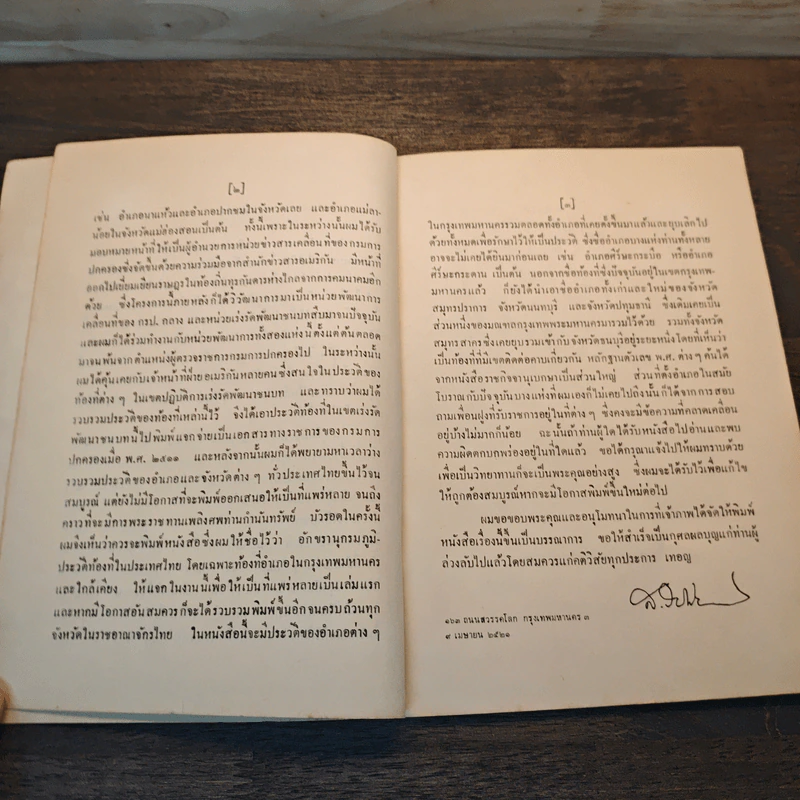 [๒]
เช่น อำเภอนาแห้วและอำเภอปากชมในจังหวัดเลย และอำเภอแม่ลา-
น้อยในจังหวัดแม่ฮ่องสอนเป็นต้น ทั้งนี้เพราะในระหว่างนั้นผมได้รับ
มอบหมายหน้าที่ให้เป็นผู้อำนวยการหน่วยข่าวสารเคลื่อนที่ของกรมการ
ปกครองซึ่งจัดขึ้นด้วยความร่วมมือจากสำนักข่าวสารอเมริกัน มีหน้าที่
ออกไปเยี่ยมเยียนราษฎรในท้องถิ่นทุรกันดารห่างไกลจากการคมนาคมอีก
ด้วย ซึ่งโครงการนี้ภายหลังก็ได้วิวัฒนาการมาเป็นหน่วยพัฒนาการ
เคลื่อนที่ของ กรป. กลาง และหน่วยเร่งรัดพัฒนาชนบทสืบมาจนปัจจุบัน
และผมก็ได้ร่วมทำงานกับหน่วยพัฒนาการทั้งสองแห่งนี้ตั้งแต่ต้นตลอด
มาจนพ้นจากตำแหน่งผู้ตรวจราชการกรมการปกครองไป ในระหว่างนั้น
ผมได้คุ้นเคยกับเจ้าหน้าที่ฝ่ายอเมริกันหลายคนซึ่งสนใจในประวัติของ
ท้องที่ต่าง ๆ ในเขตปฏิบัติการเร่งรัดพัฒนาชนบท และทราบว่าผมได้
รวบรวมประวัติของท้องที่เหล่านี้ไว้ จึงได้เอาประวัติท้องที่ในเขตเร่งรัด
พัฒนาชนบทนี้ไปพิมพ์แจกจ่ายเป็นเอกสารทางราชการของกรมการ
ปกครองเมื่อ พ.ศ. ๒๕๑๑ และหลังจากนั้นผมก็ได้พยายามหาเวลาว่าง
รวบรวมประวัติของอำเภอและจังหวัดต่าง ๆ ทั่วประเทศไทยขึ้นไว้จน
สมบูรณ์ แต่ยังไม่มีโอกาสที่จะพิมพ์ออกเสนอให้เป็นที่แพร่หลาย จนถึง
คราวที่จะมีการพระราชทานเพลิงศพท่านกำนันทรัพย์ บัวรอดในครั้งนี้
ผมจึงเห็นว่าควรจะพิมพ์หนังสือซึ่งผมให้ชื่อไว้ว่า อักขรานุกรมภูมิ-
ประวัติท้องที่ในประเทศไทย โดยเฉพาะท้องที่อำเภอในกรุงเทพมหานคร
และใกล้เคียง ให้แจกในงานนี้เพื่อให้เป็นที่แพร่หลายเป็นเล่มแรก
และหากมีโอกาสอันสมควรก็จะได้รวบรวมพิมพ์ขึ้นอีกจนครบถ้วนทุก
จังหวัดในราชอาณาจักรไทย ในหนังสือนี้จะมีประวัติของอำเภอต่าง ๆ
[๓]
ในกรุงเทพมหานครรวมตลอดทั้งอำเภอที่เคยตั้งขึ้นมาแล้วและยุบเลิกไป
ด้วยทั้งหมดเพื่อรักษาไว้ให้เป็นประวัติ ซึ่งชื่ออำเภอบางแห่งท่านทั้งหลาย
อาจจะไม่เคยได้ยินมาก่อนเลย เช่น อำเภอศีร์ษะกระบือ หรืออำเภอ
ศีร์ษะกระดาน เป็นต้น นอกจากชื่อท้องที่ซึ่งปัจจุบันอยู่ในเขตกรุงเทพ-
มหานครแล้ว ก็ยังได้นำเอาชื่ออำเภอทั้งเก่าและใหม่ของจังหวัด
สมุทรปราการ จังหวัดนนทบุรี และจังหวัดปทุมธานี ซึ่งเดิมเคยเป็น
ส่วนหนึ่งของมณฑลกรุงเทพพระมหานครมารวมไว้ด้วย รวมทั้งจังหวัด
สมุทรสาครซึ่งเคยยุบรวมเข้ากับจังหวัดธนบุรีอยู่ระยะหนึ่งโดยที่เห็นว่า
เป็นท้องที่ที่มีเขตติดต่อคาบเกี่ยวกัน หลักฐานตัวเลข พ.ศ. ต่าง ๆ ค้นได้
จากหนังสือราชกิจจานุเบกษาเป็นส่วนใหญ่ ส่วนที่ตั้งอำเภอในสมัย
โบราณกับปัจจุบันบางแห่งที่ผมเองก็ไม่เคยไปถึงนั้นก็ได้จากการสอบ
ถามเพื่อนฝูงที่รับราชการอยู่ในที่ต่าง ๆ ซึ่งคงจะมีข้อความที่คลาดเคลื่อน
อยู่บ้างไม่มากก็น้อย ฉะนั้นถ้าท่านผู้ใดได้รับหนังสือไปอ่านและพบ
ความผิดตกบกพร่องอยู่ในที่ใดแล้ว ขอได้กรุณาแจ้งไปให้ผมทราบด้วย
เพื่อเป็นวิทยาทานก็จะเป็นพระคุณอย่างสูง ซึ่งผมจะได้รับไว้เพื่อแก้ไข
ให้ถูกต้องสมบูรณ์หากจะมีโอกาสพิมพ์ขึ้นใหม่ต่อไป
ผมขอขอบพระคุณและอนุโมทนาในการที่เจ้าภาพได้จัดให้พิมพ์
หนังสือเรื่องนี้ขึ้นเป็นบรรณาการ ขอให้สำเร็จเป็นกุศลผลบุญแก่ท่านผู้
ล่วงลับไปแล้วโดยสมควรแก่คติวิสัยทุกประการ เทอญ
๑๖๓ ถนนสวรรคโลก กรุงเทพมหานคร ๓
๙ เมษายน ๒๕๒๑